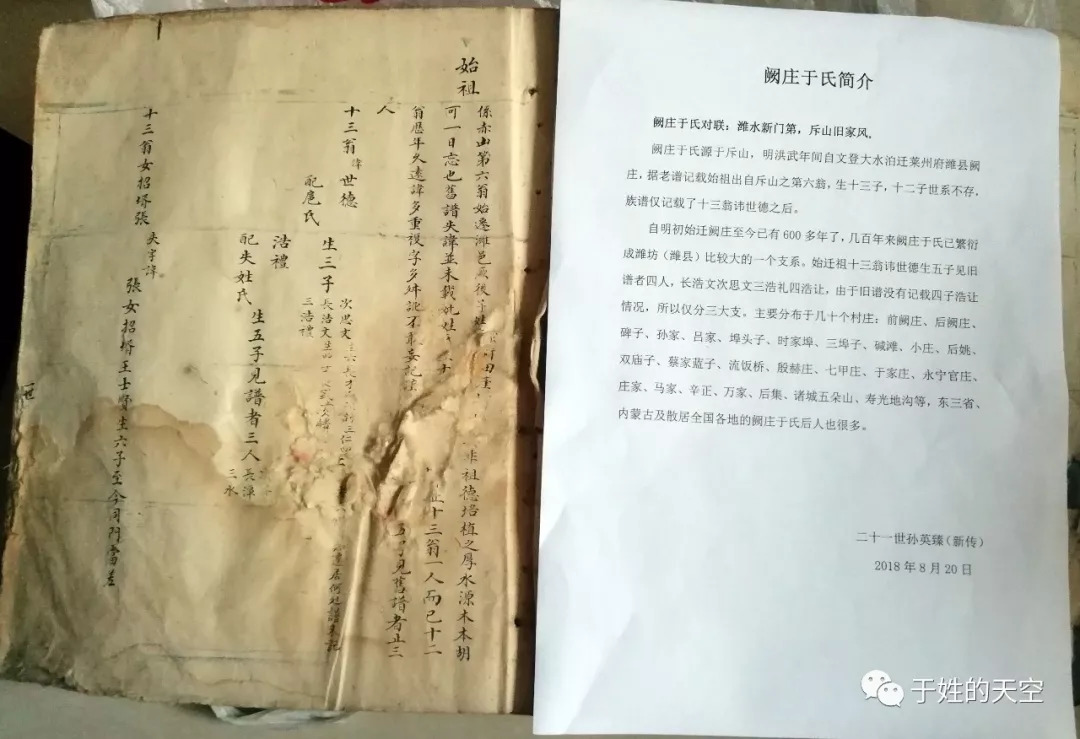 始祖
係赤山第六翁始遷濰邑
非祖德培植之厚水源木本胡
可一日忘也舊譜失諱並未載
十三翁一人而已十二
翁歷年久遠諱多重複字多
五子見舊譜者止三
人
十三翁諱世德
配扈氏
生三子
長浩文生
次思文
三浩禮
遠居何处譜未記
浩禮
配失姓氏
生五子見譜者三人
長漳
三永
十三翁女招壻張失字諱
張女招壻王士賢生六子至今同門當差
一世
阙庄于氏简介
阙庄于氏对联：潍水新门第，斥山旧家风。
阙庄于氏源于斥山，明洪武年间自文登大水泊迁莱州府潍县阙
庄，据老谱记载始祖出自斥山之第六翁，生十三子，十二子世系不存，
族谱仅记载了十三翁讳世德之后。
自明初始迁阙庄至今已有 600 多年了，几百年来阙庄于氏已繁衍
成潍坊（潍县）比较大的一个支系。始迁祖十三翁讳世德生五子见旧
谱者四人，长浩文次思文三浩礼四浩让，由于旧谱没有记载四子浩让
情况，所以仅分三大支。主要分布于几十个村庄：前阙庄、后阙庄、
碑子、孙家、吕家、埠头子、时家埠、三埠子、碱滩、小庄、后姚、
双庙子、蔡家蓝子、流饭桥、殷赫庄、七甲庄、于家庄、永宁官庄、
庄家、马家、辛正、万家、后集、诸城五朵山、寿光地沟等，东三省、
内蒙古及散居全国各地的阙庄于氏后人也很多。
二十一世孙英臻（新传）
2018 年 8 月 20 日
于姓的天空